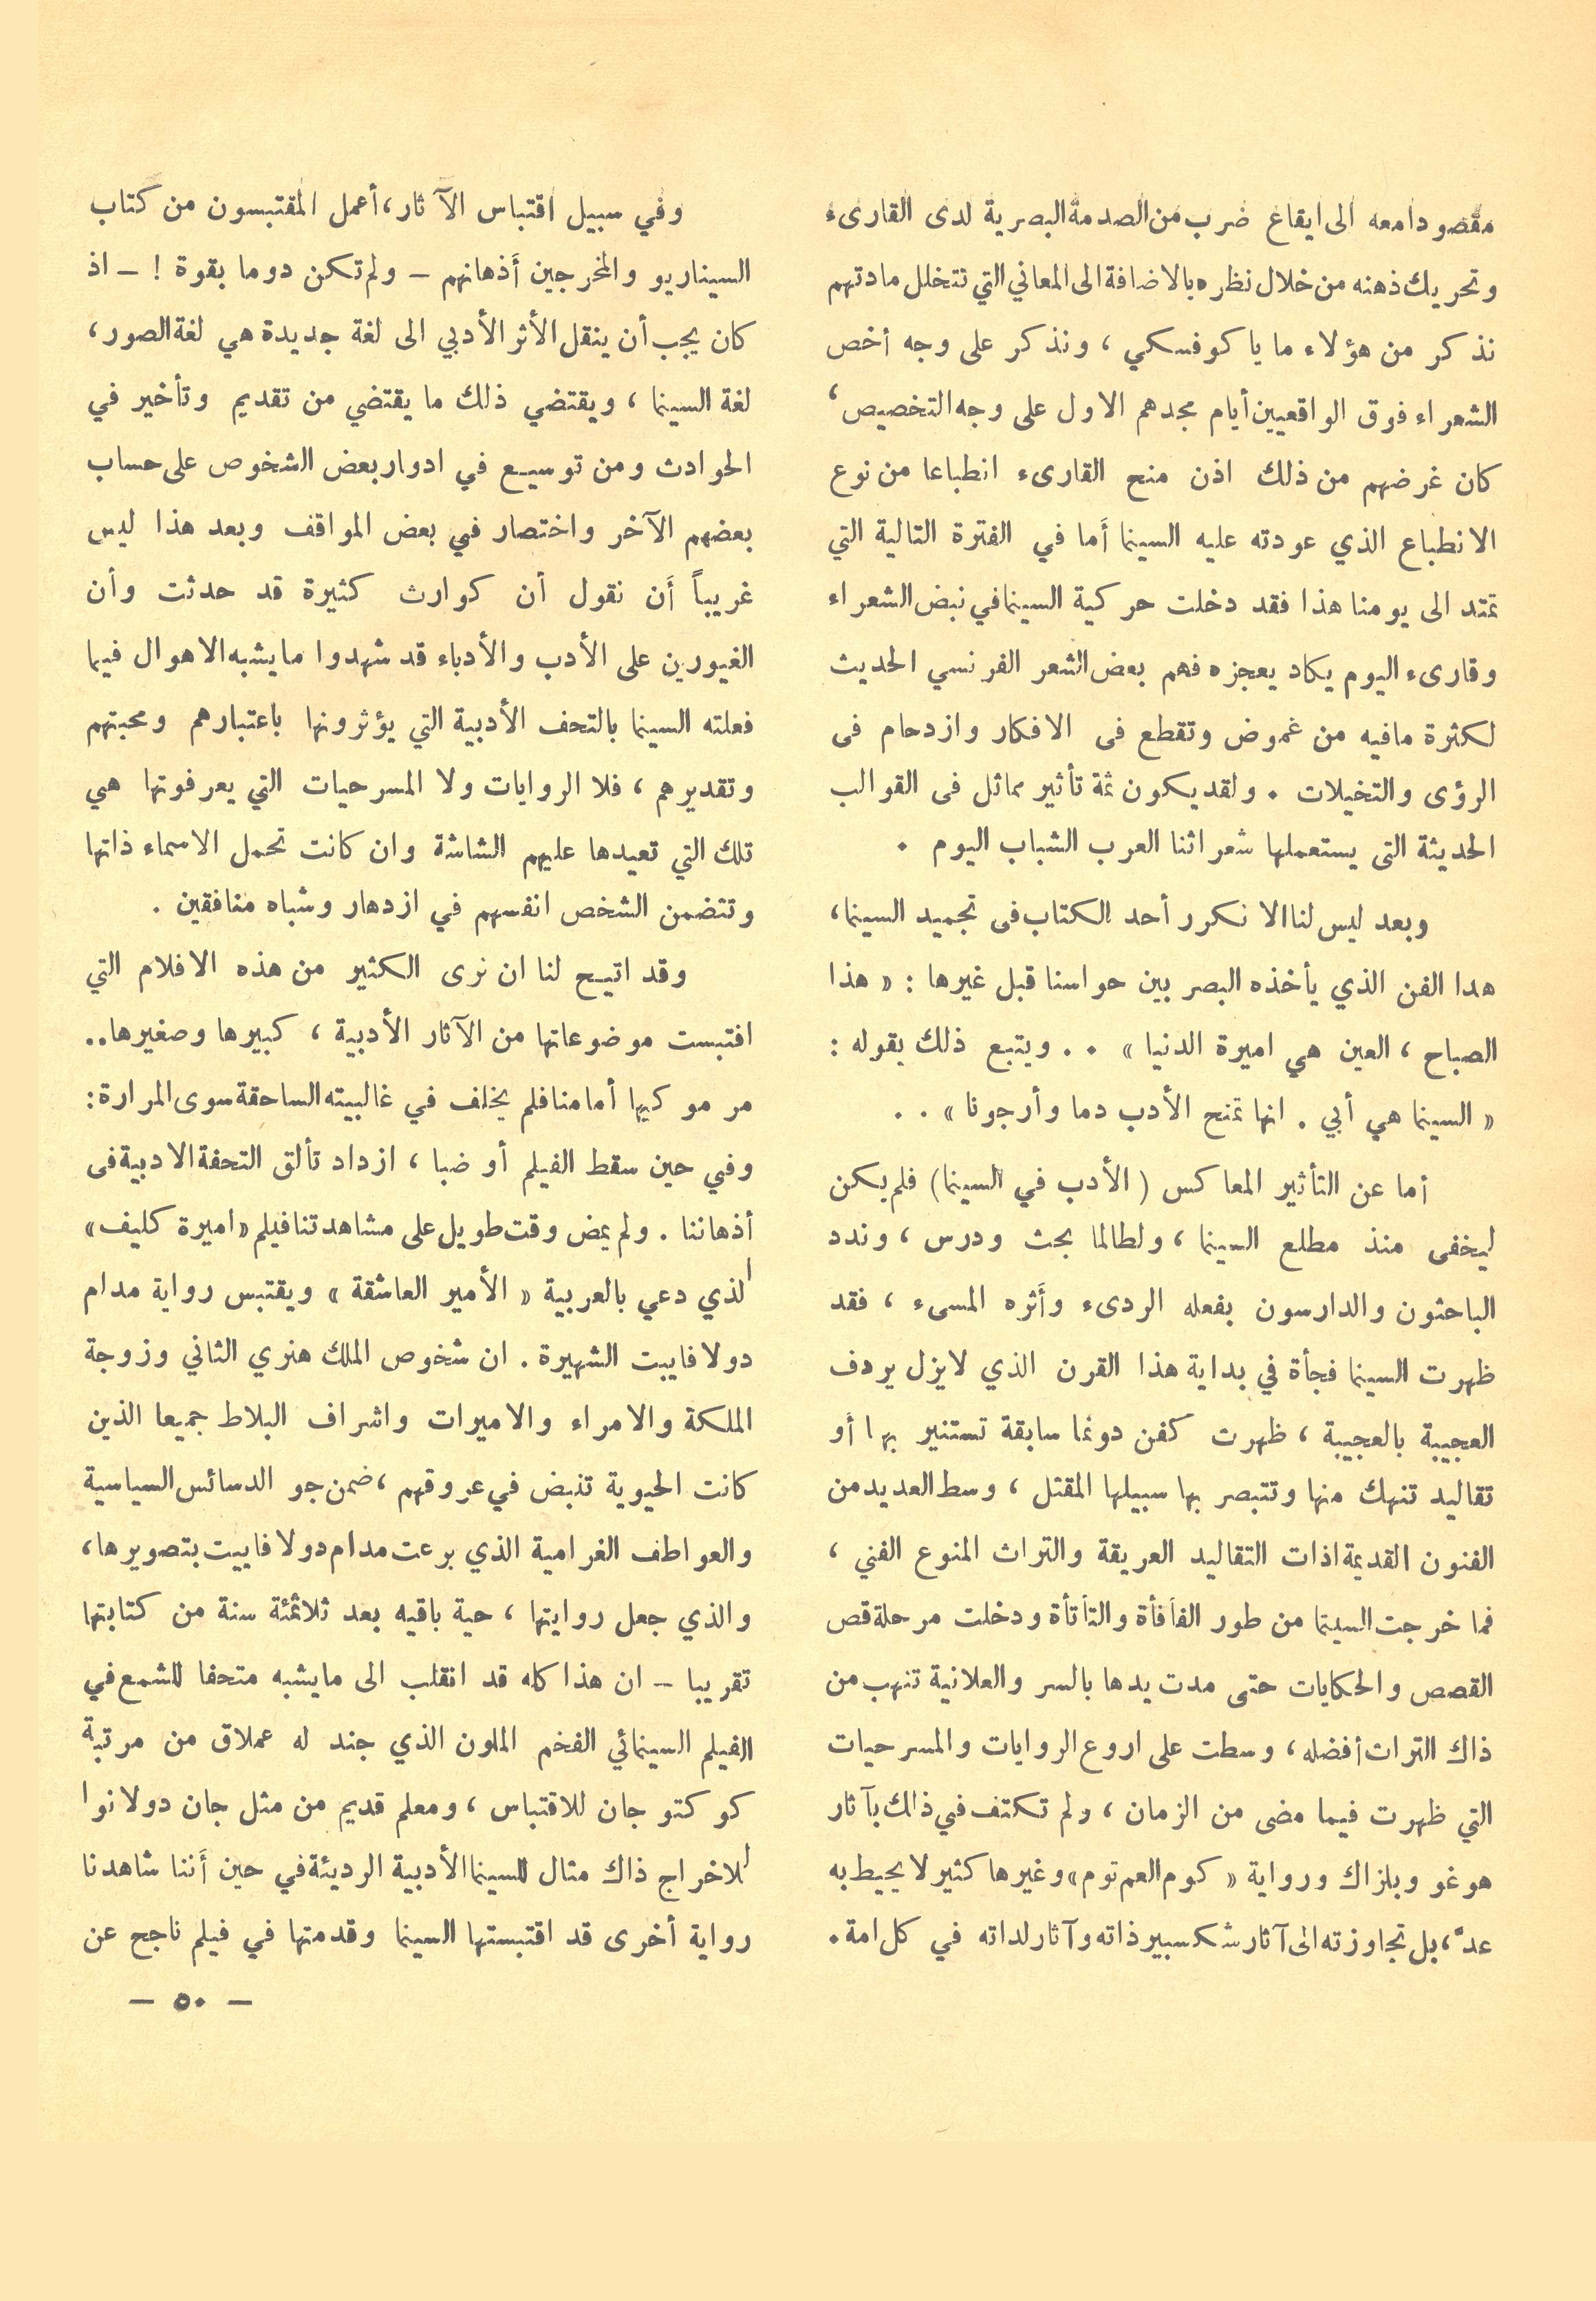 مقصودا معه الى ايقاع ضرب من الصدمة البصرية لدى القارىء
وتحريك ذهنه من خلال نظره بالاضافة الى المعاني التي تتخلل مادتهم
نذكر من هؤلاء ماياكوفسكي ، ونذكر على وجه أخص
الشعراء فوق الواقعيين أيام مجدهم الاول على وجه التخصيص ،
كان غرضهم من ذلك اذن منح القارىء انطباعا من نوع
الانطباع الذي عودته عليه السينما أما في الفترة التالية التي
تمتد الى يومنا هذا فقد دخلت حركية السينما في نبض الشعراء
وقارىء اليوم يكاد يعجزه فهم بعض الشعر الفرنسي الحديث
لكثرة مافيه من غموض وتقطع فى الافكار وازدحام فى
الرؤى والتخيلات . ولقد يكون ثمة تأثير مماثل فى القوالب
الحديثة التى يستعملها شعراثنا العرب الشباب اليوم .
وبعد ليس لنا الا نكرر أحد الكتاب فى تجميد السينما ،
هدا الفن الذي يأخذه البصر بين حواسنا قبل غيرها : « هذا
الصباح ، العين هي اميرة الدنيا » . . ويتبع ذلك بقوله :
« السينما هي أبي . انها تمنح الأدب دما وأرجونا » . .
أما عن التأثير المعاكس ( الأدب في السينما ) فلم يكن
ليخفى منذ مطلع السينما ، ولطالما بحث ودرس ، وندد
الباحثون والدارسون بفعله الردىء وأثره المسىء ، فقد
ظهرت السينما فجأة في بداية هذا القرن الذي لايزل يردف
العجيبة بالعجيبة ، ظهرت كفن دونما سابقة تستنير بها أو
تقاليد تنهك منها وتتبصر بها سبيلها المقتل ، وسط العديد من
الفنون القديمة اذات التقاليد العريقة والتراث المنوع الفني ،
فما خرجت السينما من طور الفأفأة والتأتأة ودخلت مرحلة قص
القصص والحكايات حتى مدت يدها بالسر والعلانية تنهب من
ذاك التراث أفضله ، وسطت على اروع الروايات والمسرحيات
التي ظهرت فيما مضى من الزمان ، ولم تكتف في ذلك بآثار
هوغو وبلزاك ورواية « كوم العم توم » وغيرها كثير لا يحيط به
عدّ ، بل تجاوزته الى آثار شكسبير ذاته وآثار لداته في كل امة .
وفي سبيل اقتباس الآثار ، أعمل المقتبسون من كتاب
السيناريو والمخرجين أذهانهم – ولم تكن دوما بقوة ! – اذ
كان يجب أن ينقل الأثر الأدبي الى لغة جديدة هي لغة الصور ،
لغة السينما ، ويقتضي ذلك ما يقتضي من تقديم وتأخير في
الحوادث ومن توسيع في ادوار بعض الشخوص على حساب
بعضهم الآخر واختصار في بعض المواقف وبعد هذا ليس
غريباً أن نقول أن كوارث كثيرة قد حدثت وأن
الغيورين على الأدب والأدباء قد شهدوا مايشبه الاهوال فيما
فعلته السينما بالتحف الأدبية التي يؤثرونها باعتبارهم ومحبتهم
وتقديرهم ، فلا الروايات ولا المسرحيات التي يعرفوتها هي
تلك التي تعيدها عليهم الشاشة وان كانت تحمل الاسماء ذاتها
وتتضمن الشخص انفسهم في ازدهار وشباه منافقين .
وقد اتيح لنا ان نرى الكثير من هذه الافلام التي
اقتبست موضوعاتها من الآثار الأدبية ، كبيرها وصغيرها..
مر موكبها أمامنا فلم يخلف في غالبيته الساحقة سوى المرارة :
وفي حين سقط الفيلم أو ضبا ، ازداد تألق التحفة الادبية فى
أذهاننا . ولم يمض وقت طويل على مشاهدتنا فيلم « اميرة كليف »
الذي دعي بالعربية « الأمير العاشقة » ويقتبس رواية مدام
دولافاييت الشهيرة . ان شخوص الملك هنري الثاني وزوجة
الملكة والامراء والاميرات واشراف البلاط جميعا الذين
كانت الحيوية تنبض في عروقهم ، ضمن جو الدسائس السياسية
والعواطف الغرامية الذي برعت مدام دولافاييت بتصويرها ،
والذي جعل روايتها ، حية باقيه بعد ثلاثمئة سنة من كتابتها
تقريبا – ان هذا كله قد انقلب الى مايشبه متحفا للشمع في
الفيلم السينمائي الفخم الملون الذي جند له عملاق من مرتبة
كوكتو جان للاقتباس ، ومعلم قديم من مثل جان دولانوا
للاخراج ذاك مثال للسينما الأدبية الرديئة في حين أننا شاهدنا
رواية أخرى قد اقتبستها السينما وقدمتها في فيلم ناجح عن
– ٥٠ –